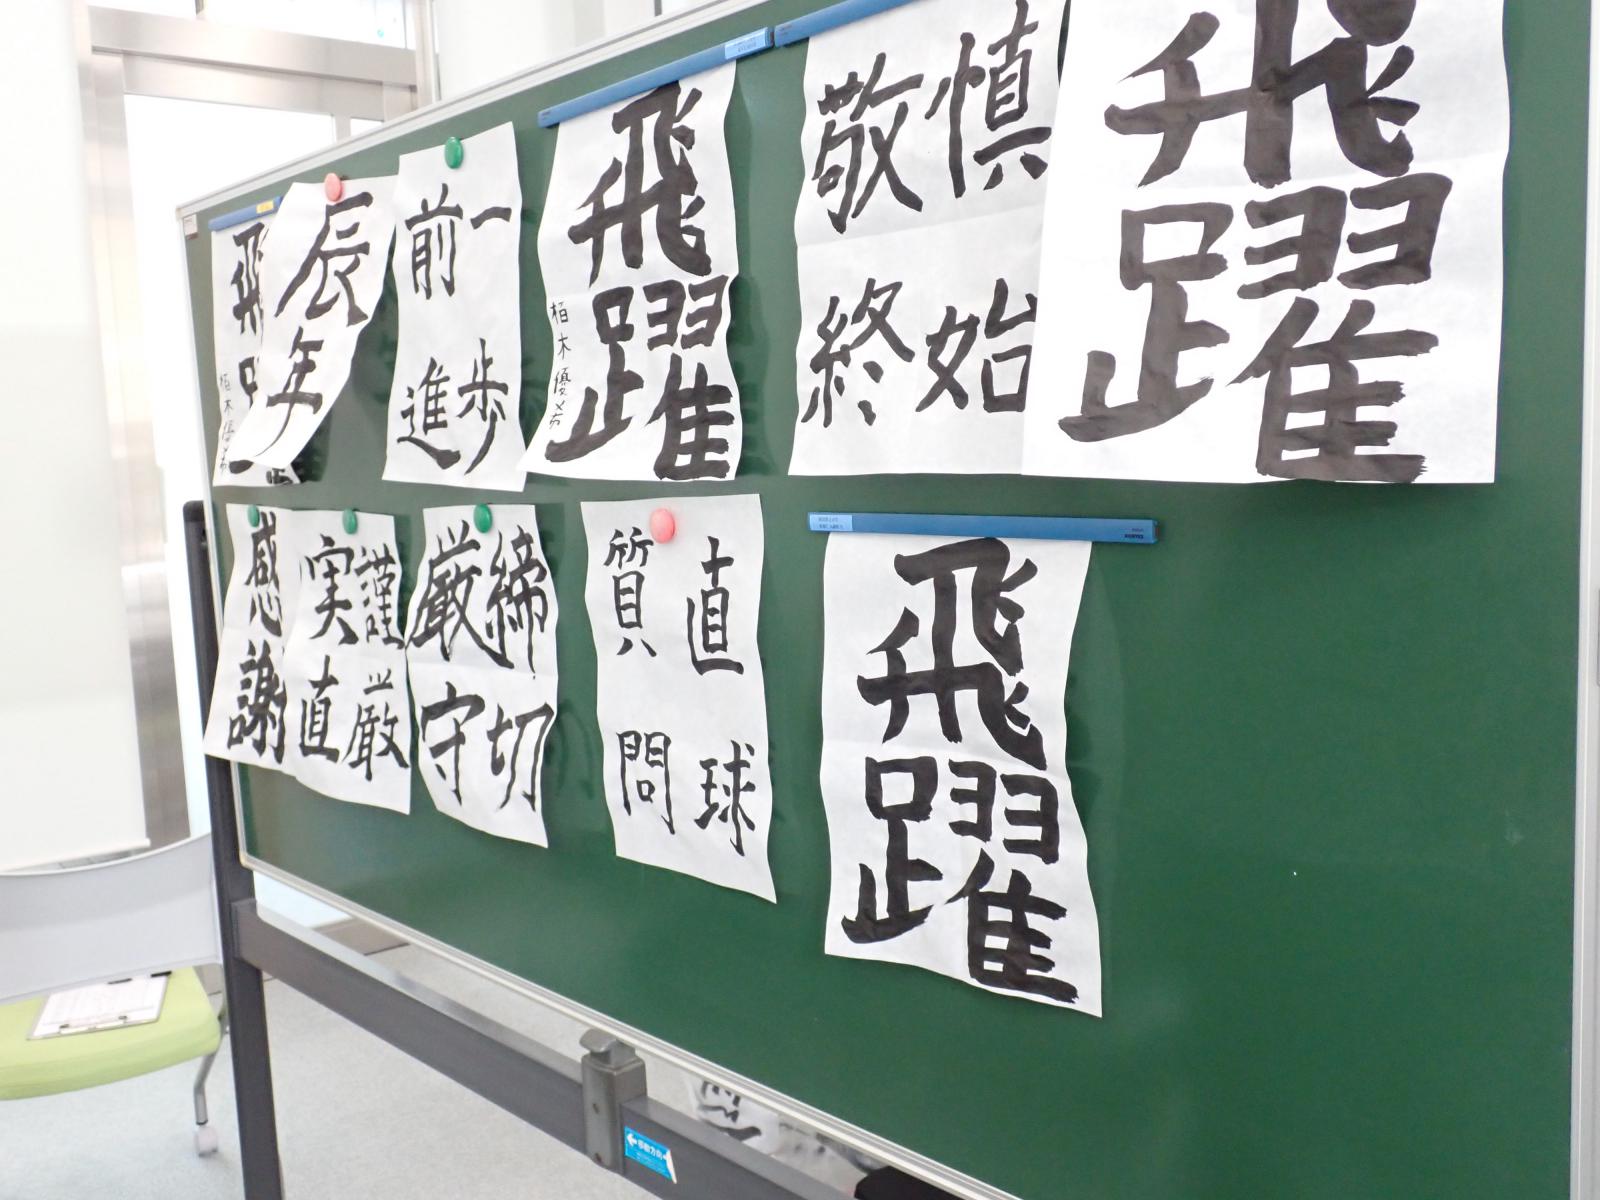 飛躍
栢木優希
辰年
一歩
前進
飛躍
栢木優希
慎始
敬終
飛躍
感謝
謹厳
実直
締切
厳守
直球
質問
飛躍
移動方向